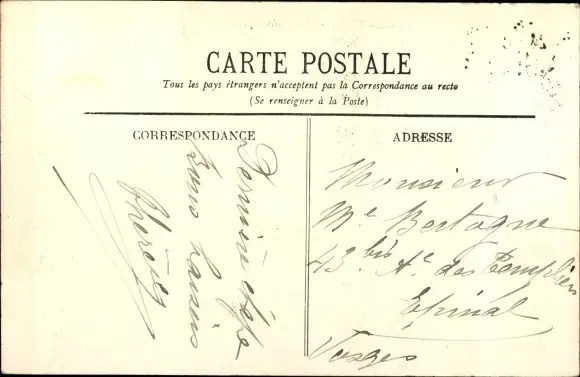 CARTE POSTALE
Tous les pays étrangers n'acceptent pas la Correspondance au recto
(Se renseigner à la Poste)
CORRESPONDANCE
Dernière étape
Bons baisers
Thérèse
ADRESSE
Monsieur
Me Bertagne
43 bis Ae des Templiers
Epinal
Vosges